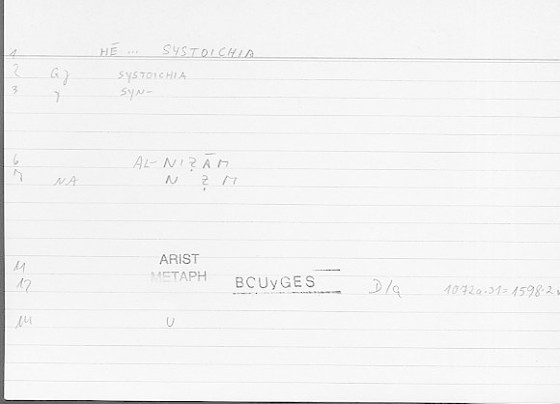 1 HĒ ... SYSTOICHIA
2 Gz SYSTOICHIA
3 z SYN-
6 AL-NIẒĀM
7 NA N Ẓ M
11 ARIST
METAPH
12 BCUyGES D/q 1072a.31=1598.2
14 U